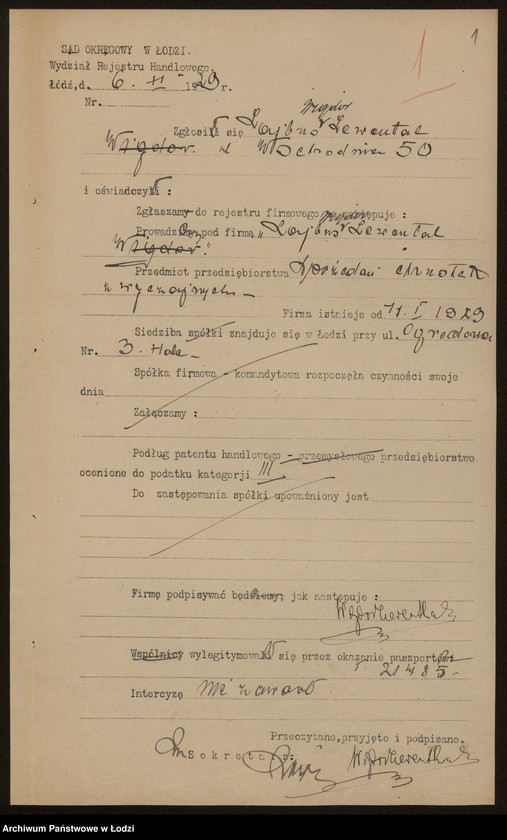 1
1
SĄD OKRĘGOWY W ŁODZI.
Wydział Rejestru Handlowego.
Łódź,d. 6. XI 1929 r.
Nr.
Wigdor
Zgłosił się Lajbuś Lewental
Wigdor. ul Wschodnia 50
i oświadczył :
Wigdor
Zgłaszamy do rejestru firmowego następuje :
Prowadzę pod firmą „Lajbuś Lewental
Wigdor."
Przedmiot przedsiębiorstwa Sprzedaż
zwyczajnych
Firma istnieje od 11. I 1929
Siedziba spółki znajduje się w Łodzi przy ul. Ogrodowa
Nr. 3. Hala
Spółka firmowa - komandytowa rozpoczęła czynności swoje
dnia
Załączamy :
Podług patentu handlowego - przemysłowego przedsiębiorstwo
ocenione do podatku kategorji III
Do zastępowania spółki upoważniony jest
Firmę podpisywać będę jak następuje :
Wspólnicy wylegitymował się przez okazanie paszportów:
21485.
Intercyzę nie zawarł
Przeczytano,przyjęto i podpisano.
Sekretarz:
Archiwum Państwowe w Łodzi